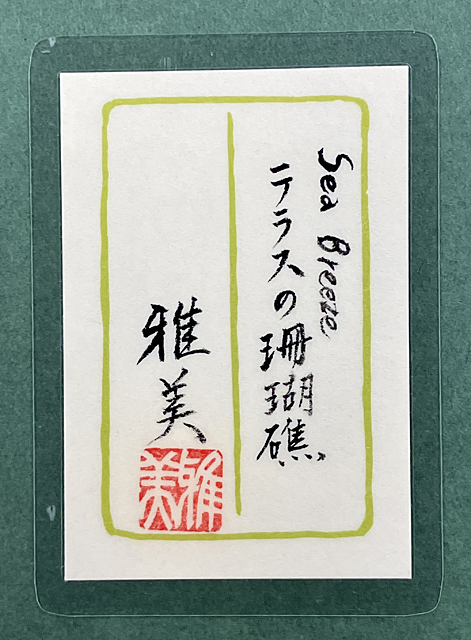 Sea Breeze
テラスの珊瑚礁
雅美
雅美